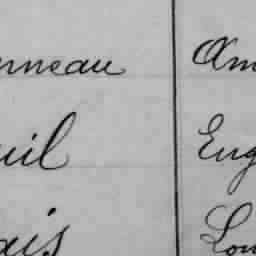 nneau Am
uil Eug
ais Lou